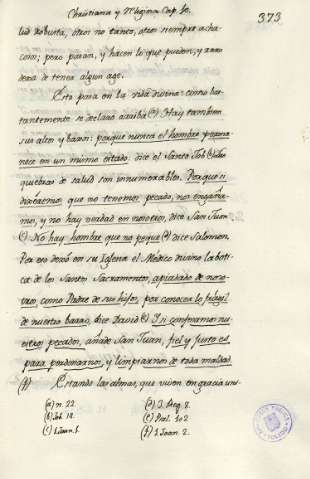 Christiana y Religiosa Cap. 10. 373
lud robusta, otros no tanto, otros siempre acha-
cosos; pero pasan, y hacen lo que pueden, y aun
dexa de tener algun age.
Esto pasa en la vida divina: como bas-
tantemente se declaró arriba (a) Hay tambien
sus altos y baxos: porque nunca el hombre perma-
nece en un mismo estado, dice el Santo Job (b)
quiebras de salud son innumerables. Porque si
dixéremos que no tenemos pecado, nos engaña-
mos, y no hay verdad en nosotros, dice San Juan
(c) No hay hombre que no peque (d) dice Salomon.
Por eso dexó en su Iglesia el Médico divino la boti-
ca de los Santos Sacramentos, apiadado de noso-
tros, como Padre de sus hijos, por conocer lo fragil
de nuestro barro, dice David (e) Y si confesamos nu-
estros pecados, añade San Juan, fiel y justo es,
para perdonarnos, y limpiarnos de toda maldad.
(f) Estando las almas, que viven en gracia uni-
(a) n. 22.
(b) Job. 14.
(c) 1 Joan. 1.
(d) 3. Reg. 8.
(e) Psal. 102
(f) 1 Joan. 2.